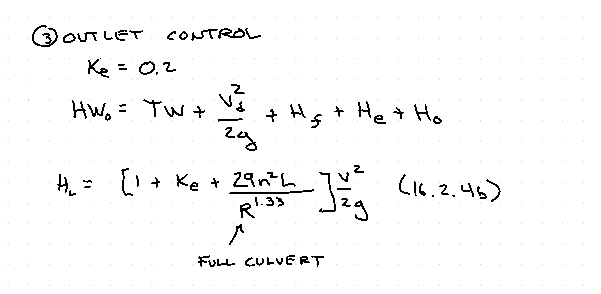 ③ OUTLET CONTROL
Ke = 0.2
HWo = TW + Vd²/2g + Hf + He + Ho
HL = [1 + Ke + 29n²L/R^1.33] V²/2g (16.2.4b)
FULL CULVERT